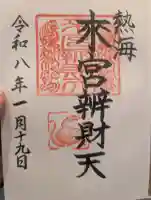 熱海
来宮辨財天
令和八年一月十九日